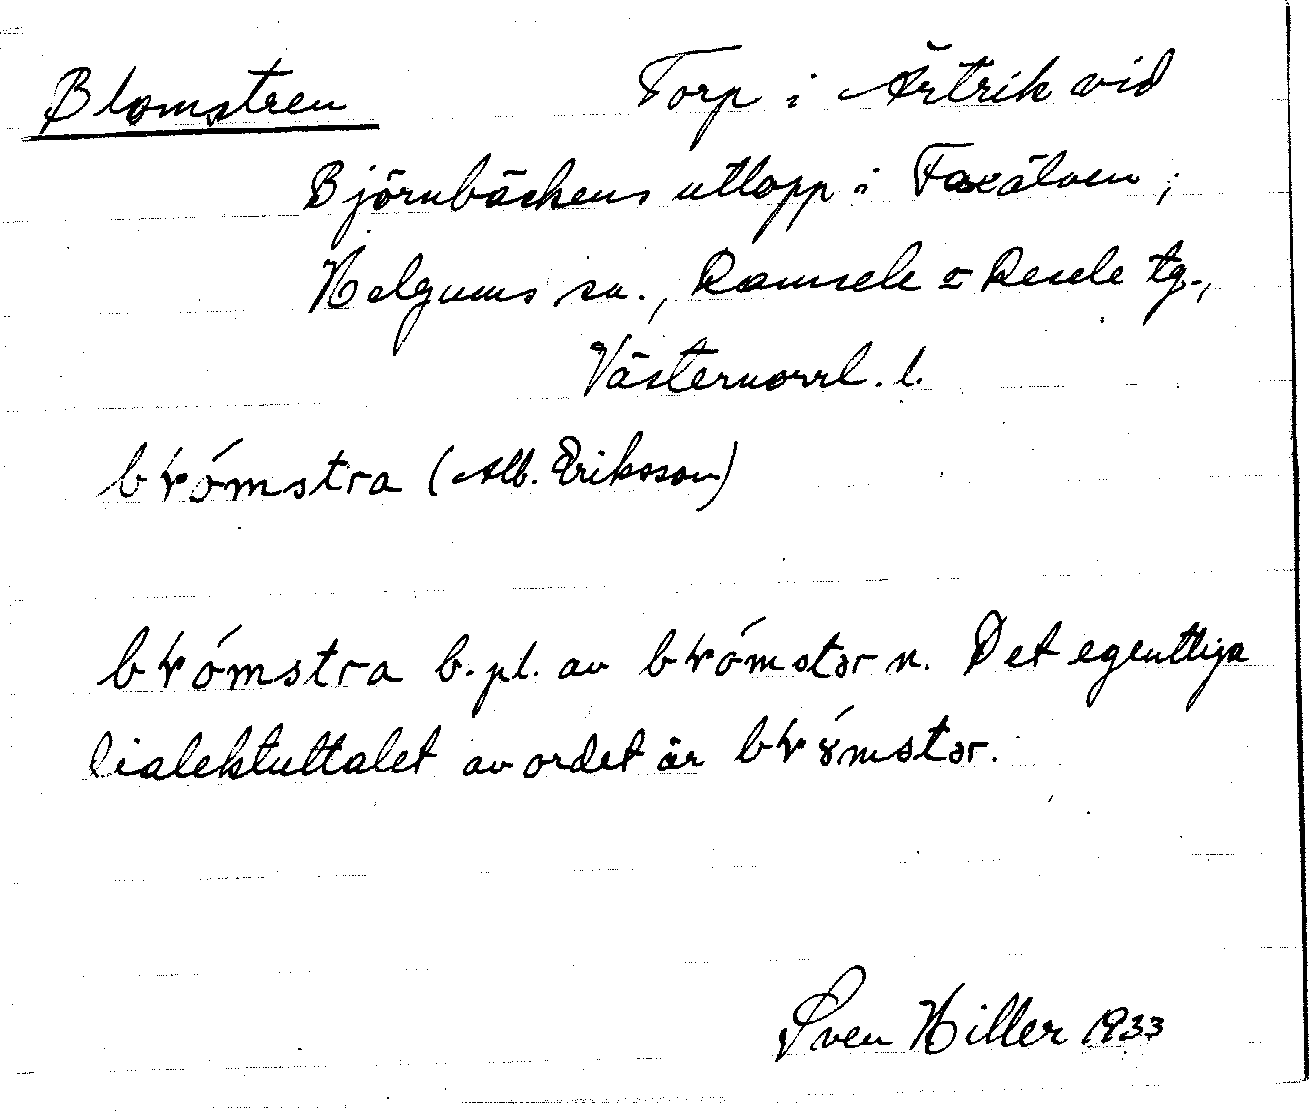 Blomstren Torp i Ärtrik vid
Björnbäckens utlopp i Faxälven;
Helgums sn., Ramsele o Resele tg.,
Västernorrl. l.
błómstra (Alb. Eriksson)
błómstra b. pl. av błómstər n. Det egentliga
dialektuttalet av ordet är
Sven Hiller 1933